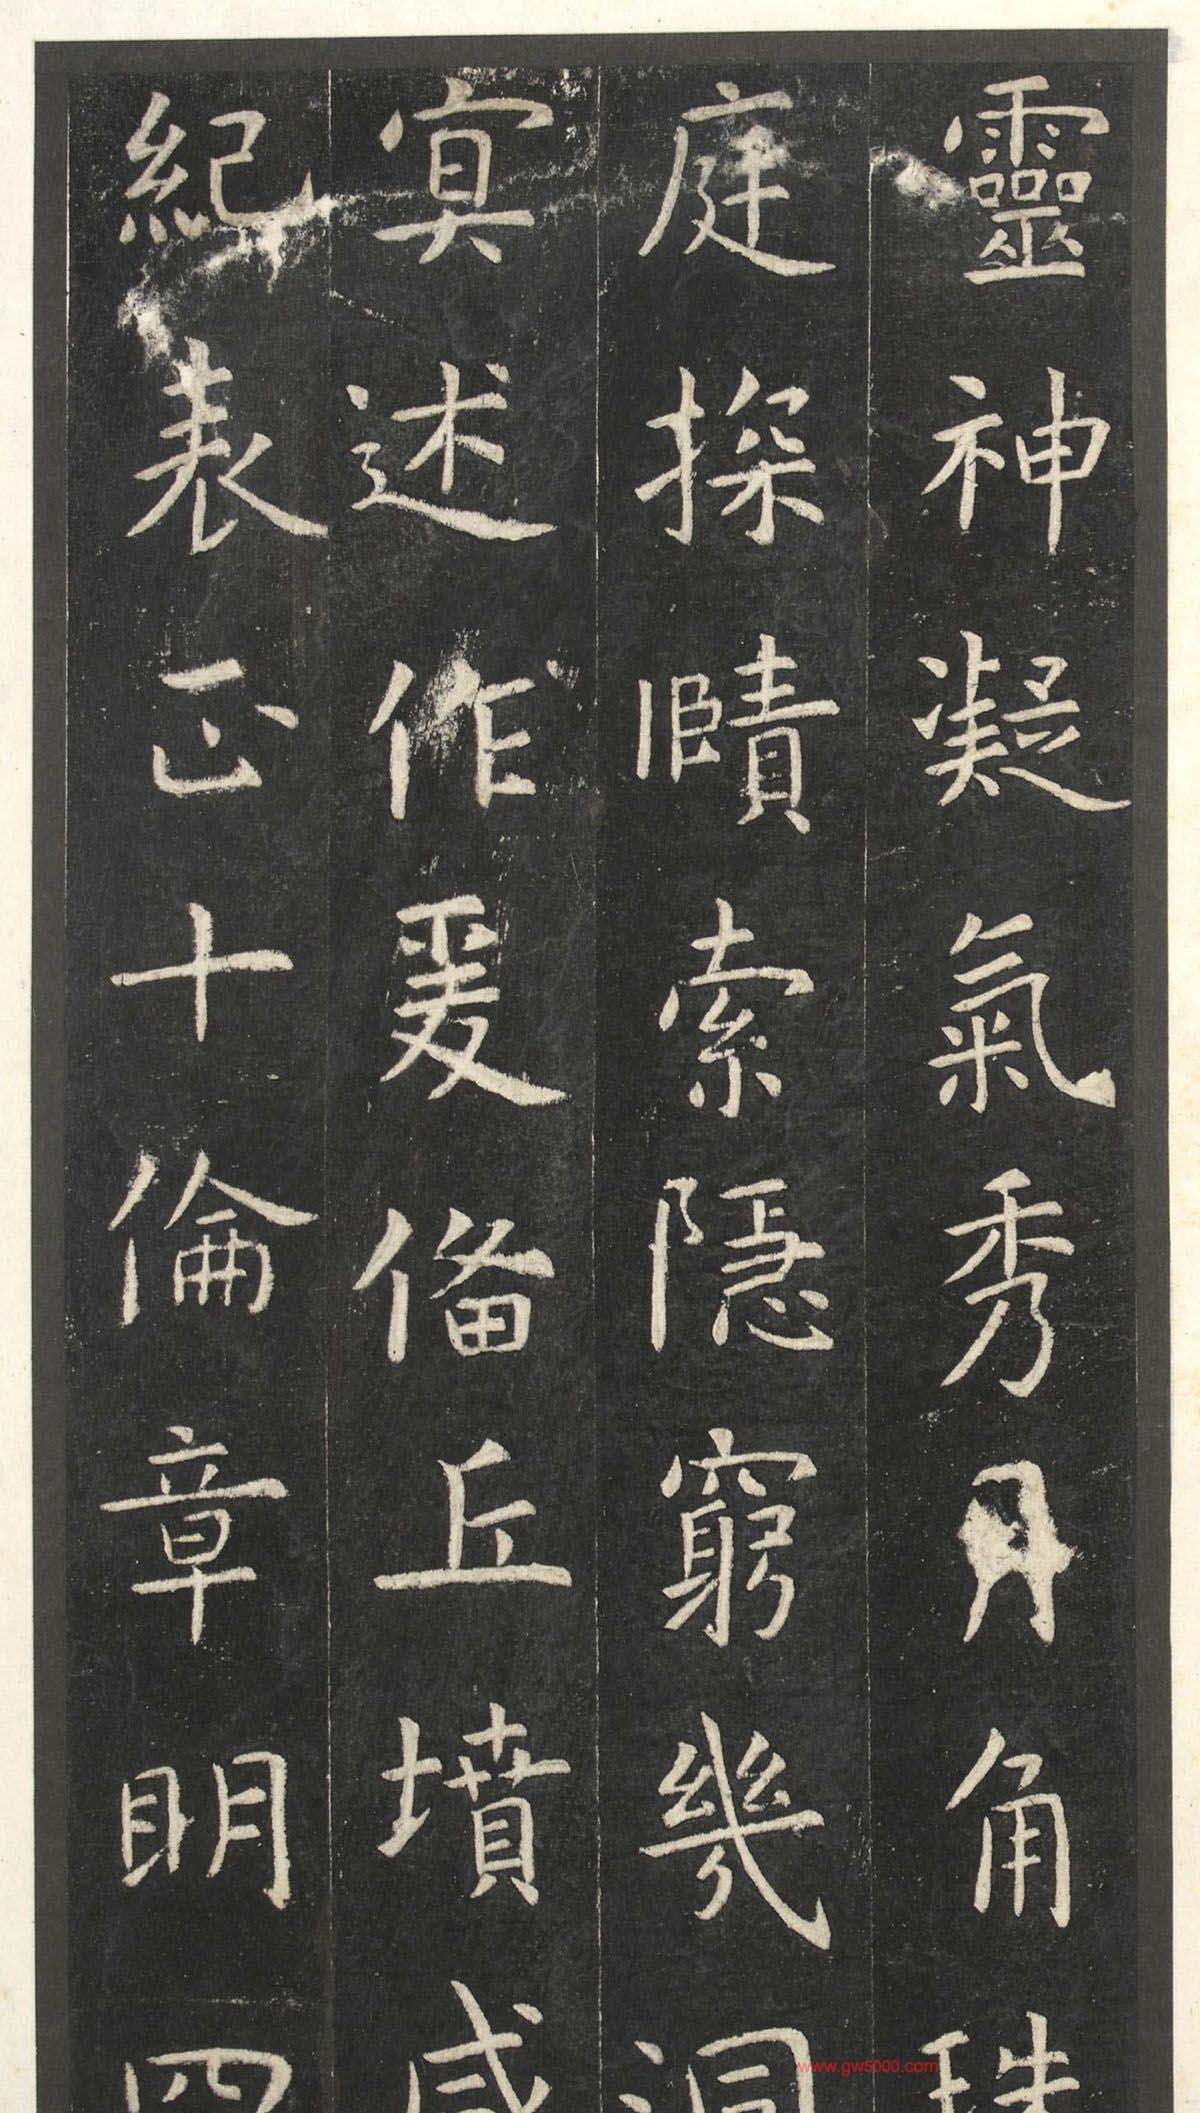 靈神凝氣秀月角珠
庭探賾索隱窮幾洞
冥述作爰俻丘墳咸
紀表正十倫章明四
www.gw5000.com